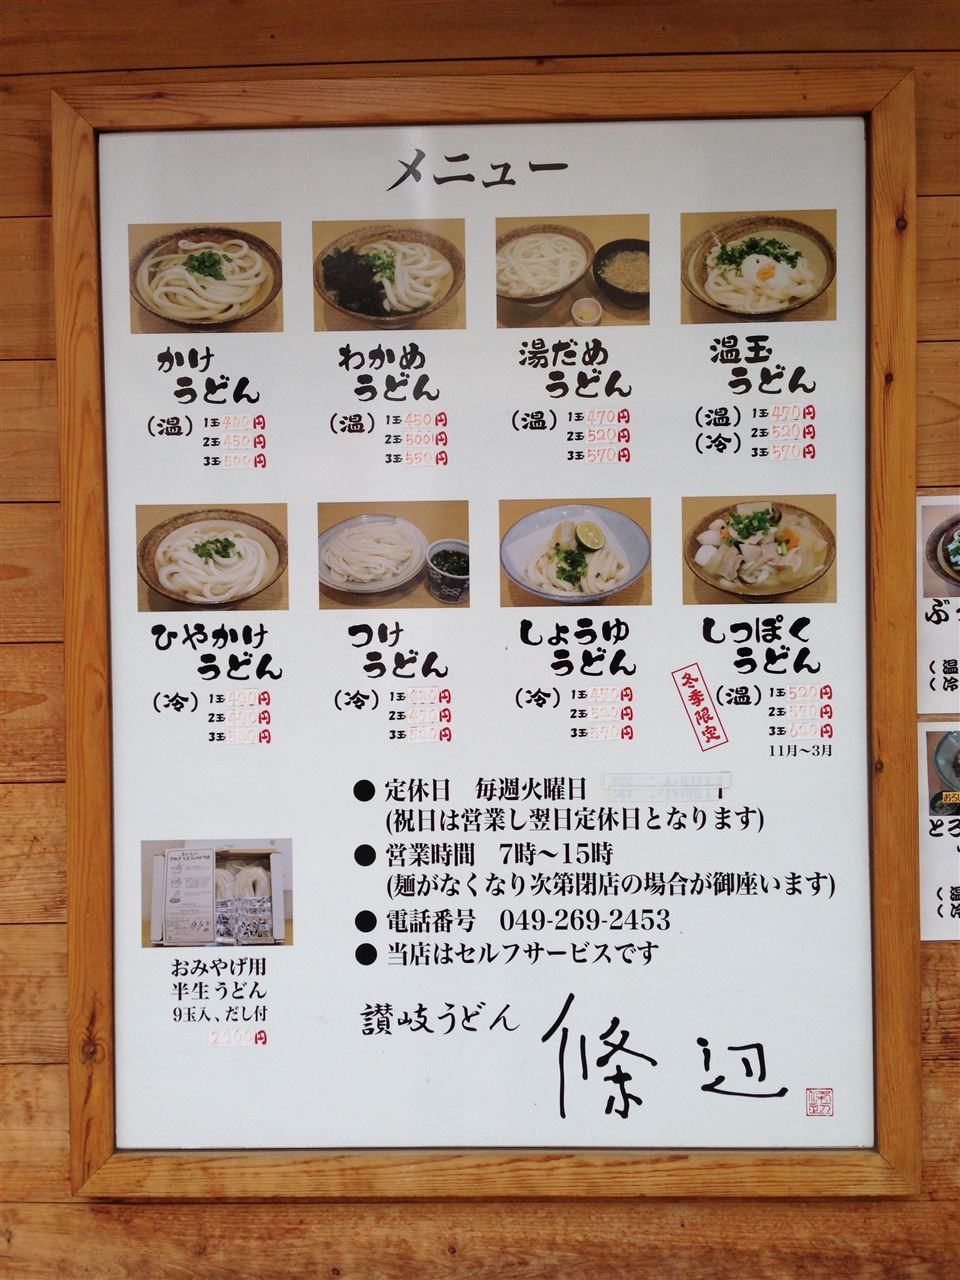 メニュー
かけ
うどん
(温) 1玉400円
2玉450円
3玉500円
わかめ
うどん
(温) 1玉450円
2玉500円
3玉550円
湯だめ
うどん
(温) 1玉470円
2玉520円
3玉570円
温玉
うどん
(温) 1玉470円
(冷) 2玉520円
3玉570円
ひやかけ
うどん
(冷) 1玉420円
2玉470円
3玉520円
つけ
うどん
(冷) 1玉420円
2玉470円
3玉520円
しょうゆ
うどん
(冷) 1玉470円
2玉520円
3玉570円
しっぽく
うどん
冬季限定
(温) 1玉520円
2玉570円
3玉620円
11月〜3月
● 定休日 毎週火曜日 第三水曜日
(祝日は営業し翌日定休日となります)
● 営業時間 7時〜15時
(麺がなくなり次第閉店の場合が御座います)
● 電話番号 049-269-2453
● 当店はセルフサービスです
おみやげ用
半生うどん
9玉入、だし付
2200円
讃岐うどん
條辺
ぶっ
(温
(冷
おろし
とろ
(温
(冷